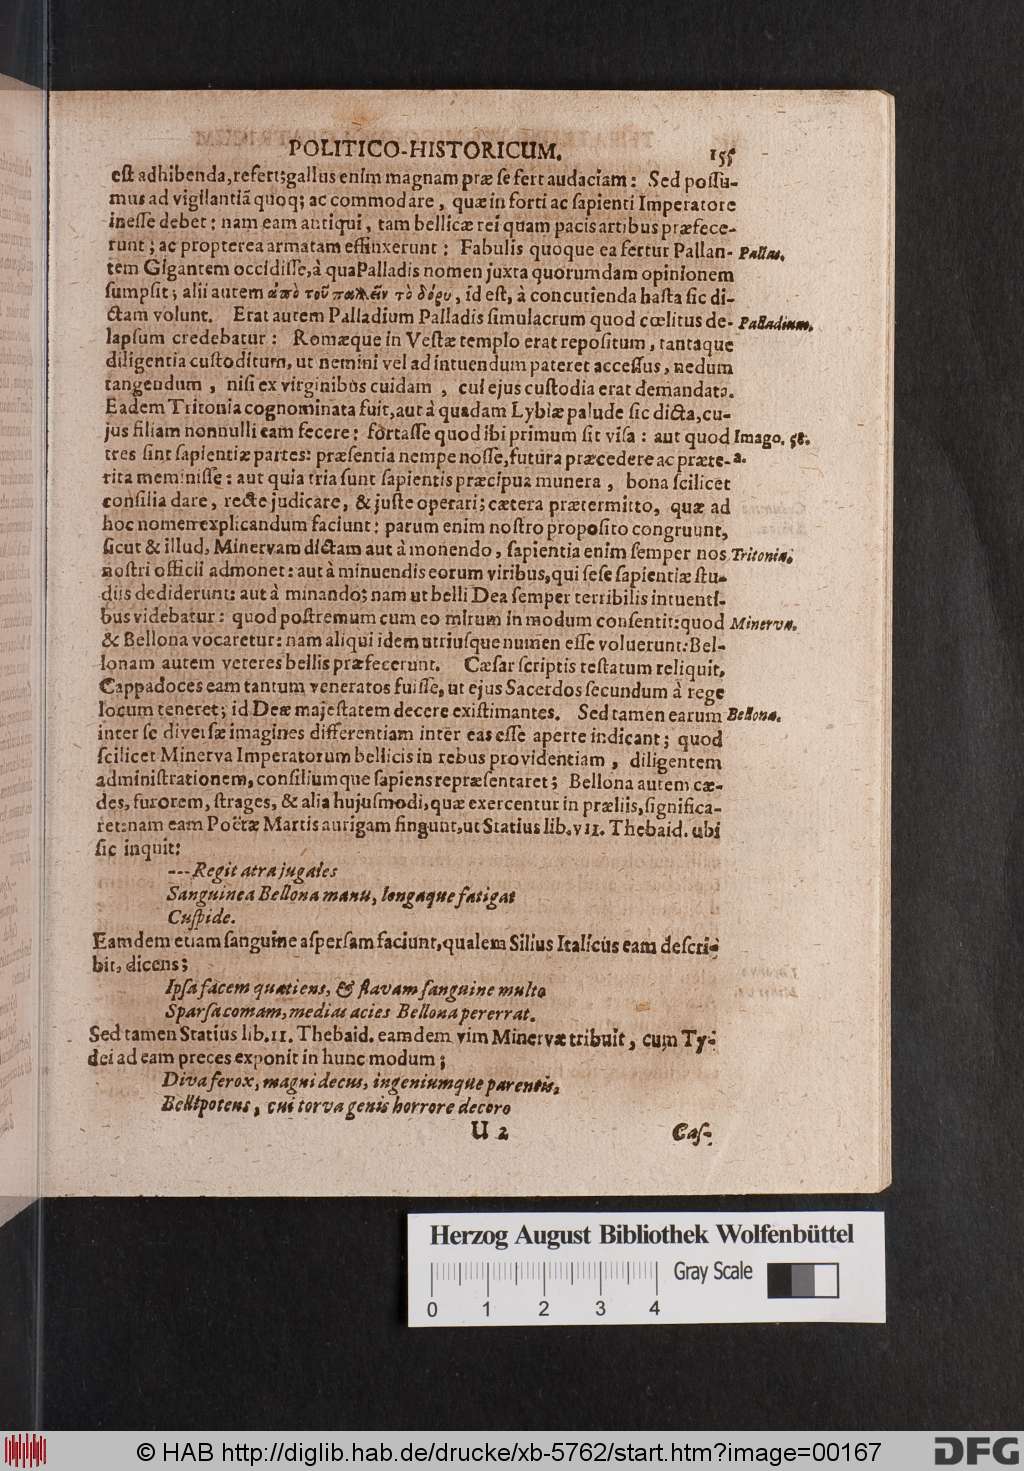 POLITICO-HISTORICUM. 155
est adhibenda, refert; gallus enim magnam præ se fert audaciam: Sed possu-
mus ad vigilantiã quoq; accommodare, quæ in forti ac sapienti Imperatore
inesse debet: nam eam antiqui, tam bellicæ rei quam pacis artibus præfece-
runt; ac propterea armatam effinxerunt: Fabulis quoque ea fertur Pallan- Pallas.
tem Gigantem occidisse, à qua Palladis nomen juxta quorumdam opinionem
sumpsit; alii autem ἀπὸ τοῦ πάλλειν τὸ δόρυ, id est, à concutienda hasta sic di-
ctam volunt. Erat autem Palladium Palladis simulacrum quod cœlitus de- Palladium.
lapsum credebatur: Romæque in Vestæ templo erat repositum, tantaque
diligentia custoditum, ut nemini vel ad intuendum pateret accessus, nedum
tangendum, nisi ex virginibus cuidam, cui ejus custodia erat demandata.
Eadem Tritonia cognominata fuit, aut à quadam Lybiæ palude sic dicta, cu-
jus filiam nonnulli eam fecere: fortasse quod ibi primum sit visa: aut quod Imago. 51.
tres sint sapientiæ partes: præsentia nempe nosse, futura præcedere ac præte- a.
rita meminisse: aut quia tria sunt sapientis præcipua munera, bona scilicet
consilia dare, recte judicare, & juste operari; cætera prætermitto, quæ ad
hoc nomen explicandum faciunt: parum enim nostro proposito congruunt,
sicut & illud, Minervam dictam aut à monendo, sapientia enim semper nos Tritonia.
nostri officii admonet: aut à minuendis eorum viribus, qui sese sapientiæ stu-
diis dediderunt: aut à minando; nam ut belli Dea semper terribilis intuenti-
bus videbatur: quod postremum cum eo mirum in modum consentit: quod Minerva.
& Bellona vocaretur: nam aliqui idem utriusque numen esse voluerunt: Bel-
lonam autem veteres bellis præfecerunt. Cæsar scriptis testatum reliquit,
Cappadoces eam tantum veneratos fuisse, ut ejus Sacerdos secundum à rege
locum teneret; id Deæ majestatem decere existimantes. Sed tamen earum Bellona.
inter se diversæ imagines differentiam inter eas esse aperte indicant; quod
scilicet Minerva Imperatorum bellicis in rebus providentiam, diligentem
administrationem, consiliumque sapiens repræsentaret; Bellona autem cæ-
des, furorem, strages, & alia hujusmodi, quæ exercentur in præliis, significa-
ret: nam eam Poëtæ Martis aurigam fingunt, ut Statius lib. VII. Thebaid. ubi
sic inquit:
--- Regit atra jugales
Sanguinea Bellona manu, longaque fatigat
Cuspide.
Eamdem etiam sanguine aspersam faciunt, qualem Silius Italicus eam descri-
bit, dicens;
Ipsa facem quatiens, & flavam sanguine multo
Sparsa comam, medias acies Bellona pererrat.
Sed tamen Statius lib. II. Thebaid. eamdem vim Minervæ tribuit, cum Ty-
dei ad eam preces exponit in hunc modum;
Diva ferox, magni decus, ingeniumque parentis,
Bellipotens, cui torva genis horrore decoro
U 2 Cas-
Herzog August Bibliothek Wolfenbüttel
Gray Scale
0 1 2 3 4
© HAB http://diglib.hab.de/drucke/xb-5762/start.htm?image=00167
DFG